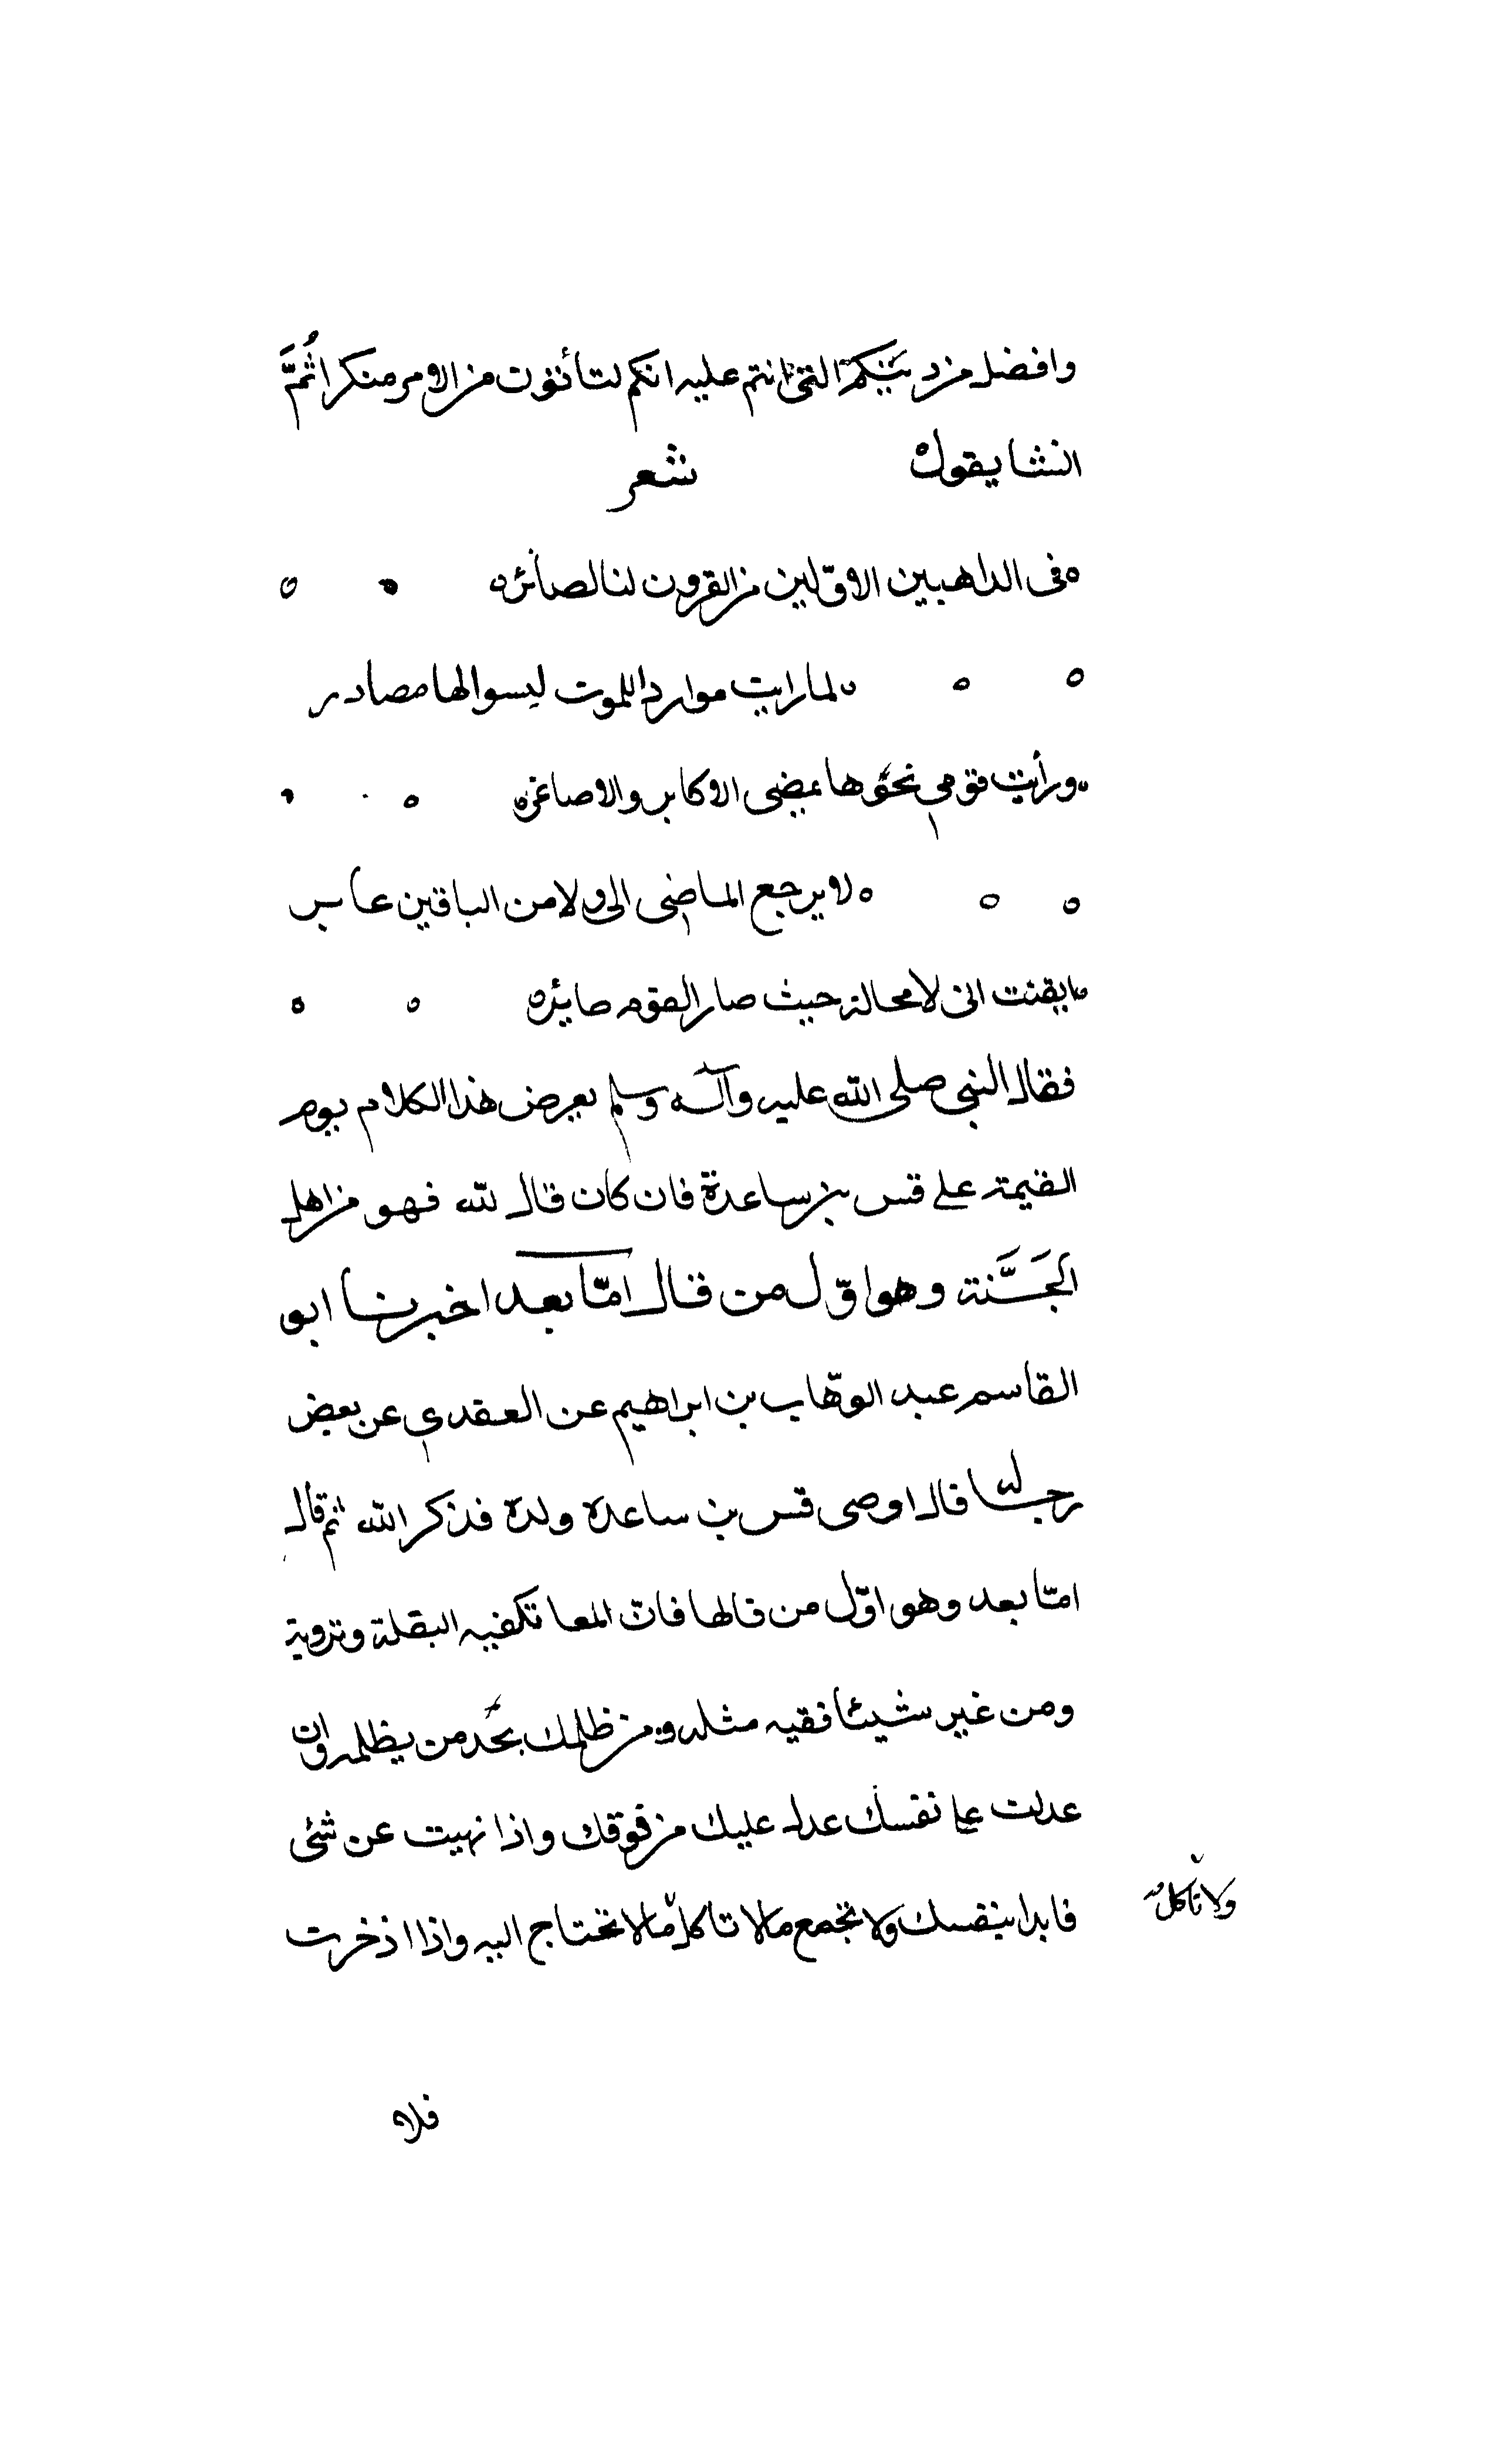 وافضل من دينكم التى انتم عليه انكم لتأتون من الامر منكرا ثُمَّ
انشا يقول شعر
فى الذاهبين الاوّلين من القرون لنا بصائر
لما رايت مواردا للموت ليسوا لها مصادر
ورأيت قومي نحوها يمضى الاكابر والاصاغر
لا يرجع الماضى الى ولا من الباقين غابر
ايقنت انى لا محالة حيث صار القوم صائر
فقال النبى صلى الله عليه وآله وسلم يعرض هذا الكلام يوم
القيمة على قس بن ساعدة فان كان قال لله فهو من اهل
الجَنَّة وهو اوّل من قال امّا بعد اخبرنا ابو
القاسم عبد الوهّاب بن ابراهيم عن العقدي عن بعض
رجاله قال اوصى قس بن ساعدة ولده فذكر الله ثم قال
امّا بعد وهو اوّل من قالها فان المعا تكفيه البقلة وترويه
ومن غير شيئا ففيه مثله ومن ظلمك يجد من يظلمه وان
عدلت على نفسك عدل عليك من فوقك واذا نهيت عن شئ
فابدا بنفسك ولا تجمع مالا تاكل مالا تحتاج اليه واذا اذخرت
ولا تاكل
فلا